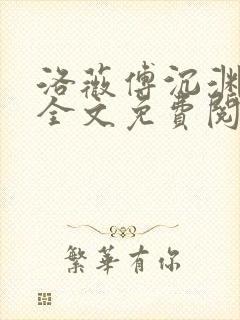 洛薇傅沉渊
全文免費閱
繁華有你